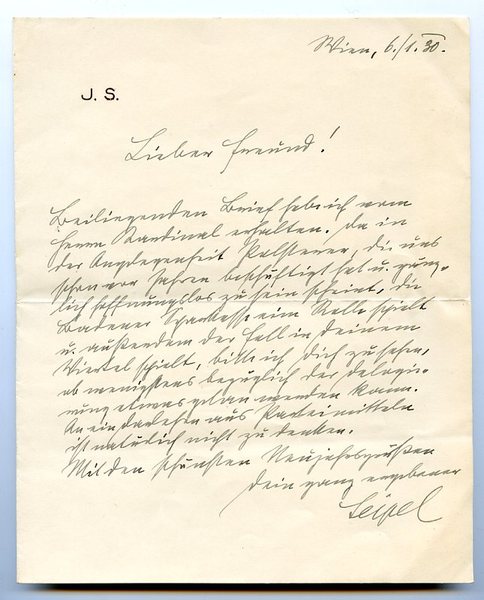 Wien, 6./1. 30.
J. S.
Lieber Freund!
Beiliegenden Brief habe ich vom
Herrn Kardinal erhalten. Da in
der Angelegenheit, die uns
schon vor Jahren beschäftigt hat u. gänz-
lich hoffnungslos zu sein scheint, die
Badener Sparkasse eine Rolle spielt
u. außerdem der Fall in Deinem
Viertel spielt, bitte ich Dich zu sehen,
ob wenigstens bezüglich der Delogie-
rung etwas getan werden kann.
An ein Darlehen aus Parteimitteln
ist natürlich nicht zu denken.
Mit den schönsten Neujahrsgrüßen
Dein ganz ergebener
Seipel